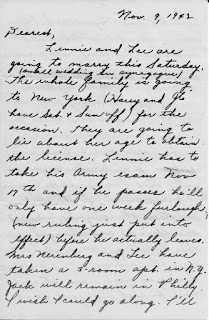 Nov. 9, 1942
Dearest,
Lennie and Lee are
going to marry this Saturday.
(small wedding in synagogue)
The whole family is going
to New York (Harry and Flo
have Sat & Sun off) for the
occasion. They are going to
lie about her age to obtain
the license. Lennie has to
take his Army exam Nov
17th and if he passes he'll
only have one week furlough,
(new ruling just put into
effect) before he actually leaves.
Mrs Nerenberg and Lee have
taken a 3-room apt. in N.Y.
Jack will remain in Philly.
I wish I could go along. I'll